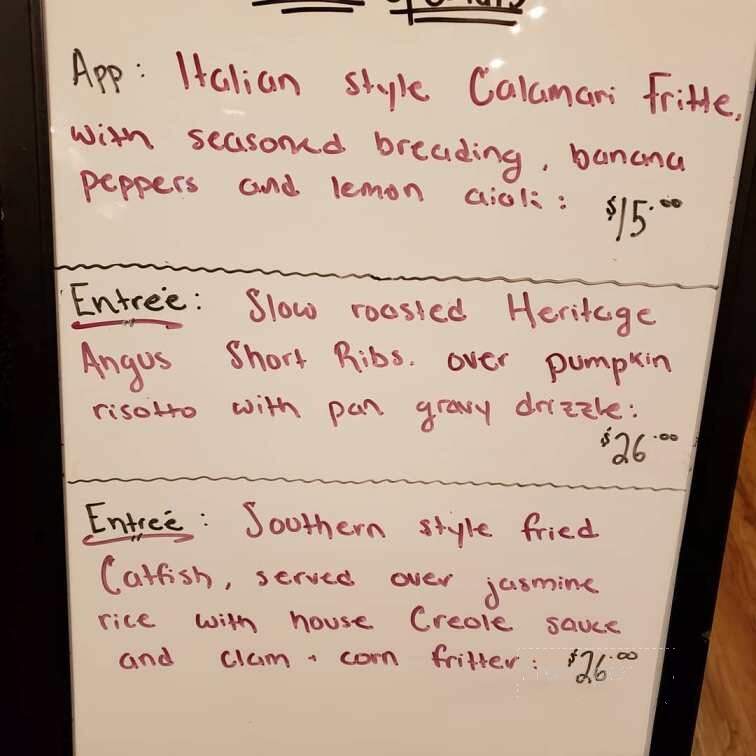 App: Italian style Calamari Fritte,
with seasoned breading, banana
peppers and lemon aioli: $15.00
Entreé: Slow roasted Heritage
Angus Short Ribs. over pumpkin
risotto with pan gravy drizzle:
$26.00
Entreé: Southern style fried
Catfish, served over jasmine
rice with house Creole sauce
and clam + corn fritter: $26.00